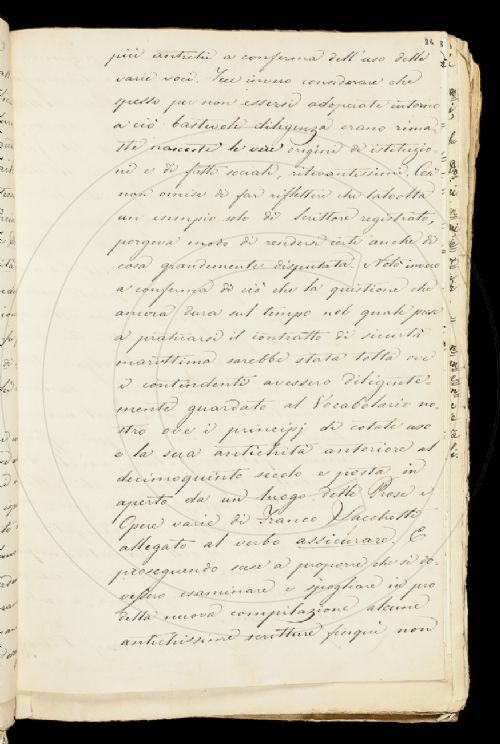 86
più antichi a conferma dell'uso delle
varie voci. Fece invero considerare che
spesso per non essersi adoperate intorno
a ciò bastevole diligenza erano rima-
ste nascoste le vere origini di istituzio-
ni e di fatti sociali, rilevantissimi. Ces
non omise di far riflettere che talvolta
un esempio solo di Scrittore registrato,
porgeva modo di rendersi certi anche di
cosa grandemente disputata. Notò invero
a conferma di ciò che la quistione che
ancora dura sul tempo nel quale prese
a praticarsi il contratto di sicurtà
marittima sarebbe stata tolta ove
i contendenti avessero diligente-
mente guardato al Vocabolario no-
stro ove i principj di cotale uso
e la sua antichità anteriore al
decimoquinto secolo è posta in
aperto da un luogo delle Prose e
Opere varie di Franco Sacchetti
allegato al verbo assicurare. E
proseguendo scese a proporre che si do-
vessero esaminare e spogliare in pro
della nuova compilazione alcune
antichissime scritture finqui non